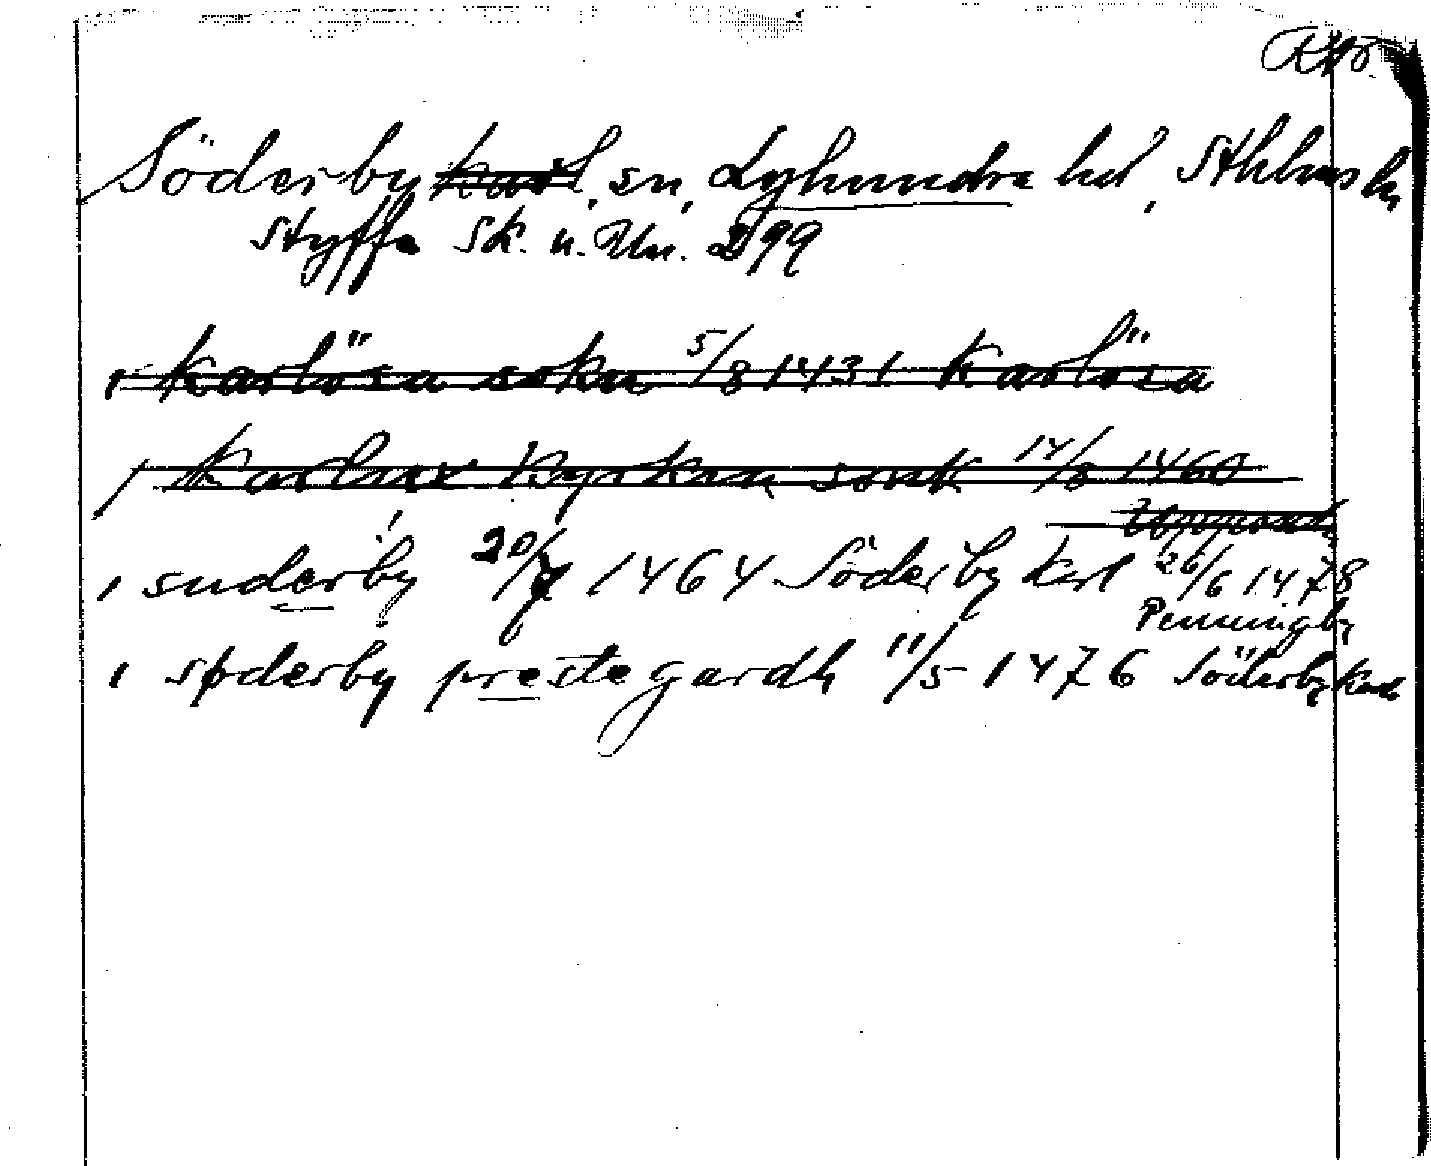 Rtö
Söderby karl, sn, Lyhundra hd, Sthlms ln
Styffe Sk. u. Un. 299
i karlösa sokn 5/8 1431 Karlösa
i Karlmx kyrkan sonk 14/8 1460
i suderby 20/7 1464 Söderby Karl 26/6 1478
Penningby
i spderby prestegardh 11/5 1476 Söderby Karl